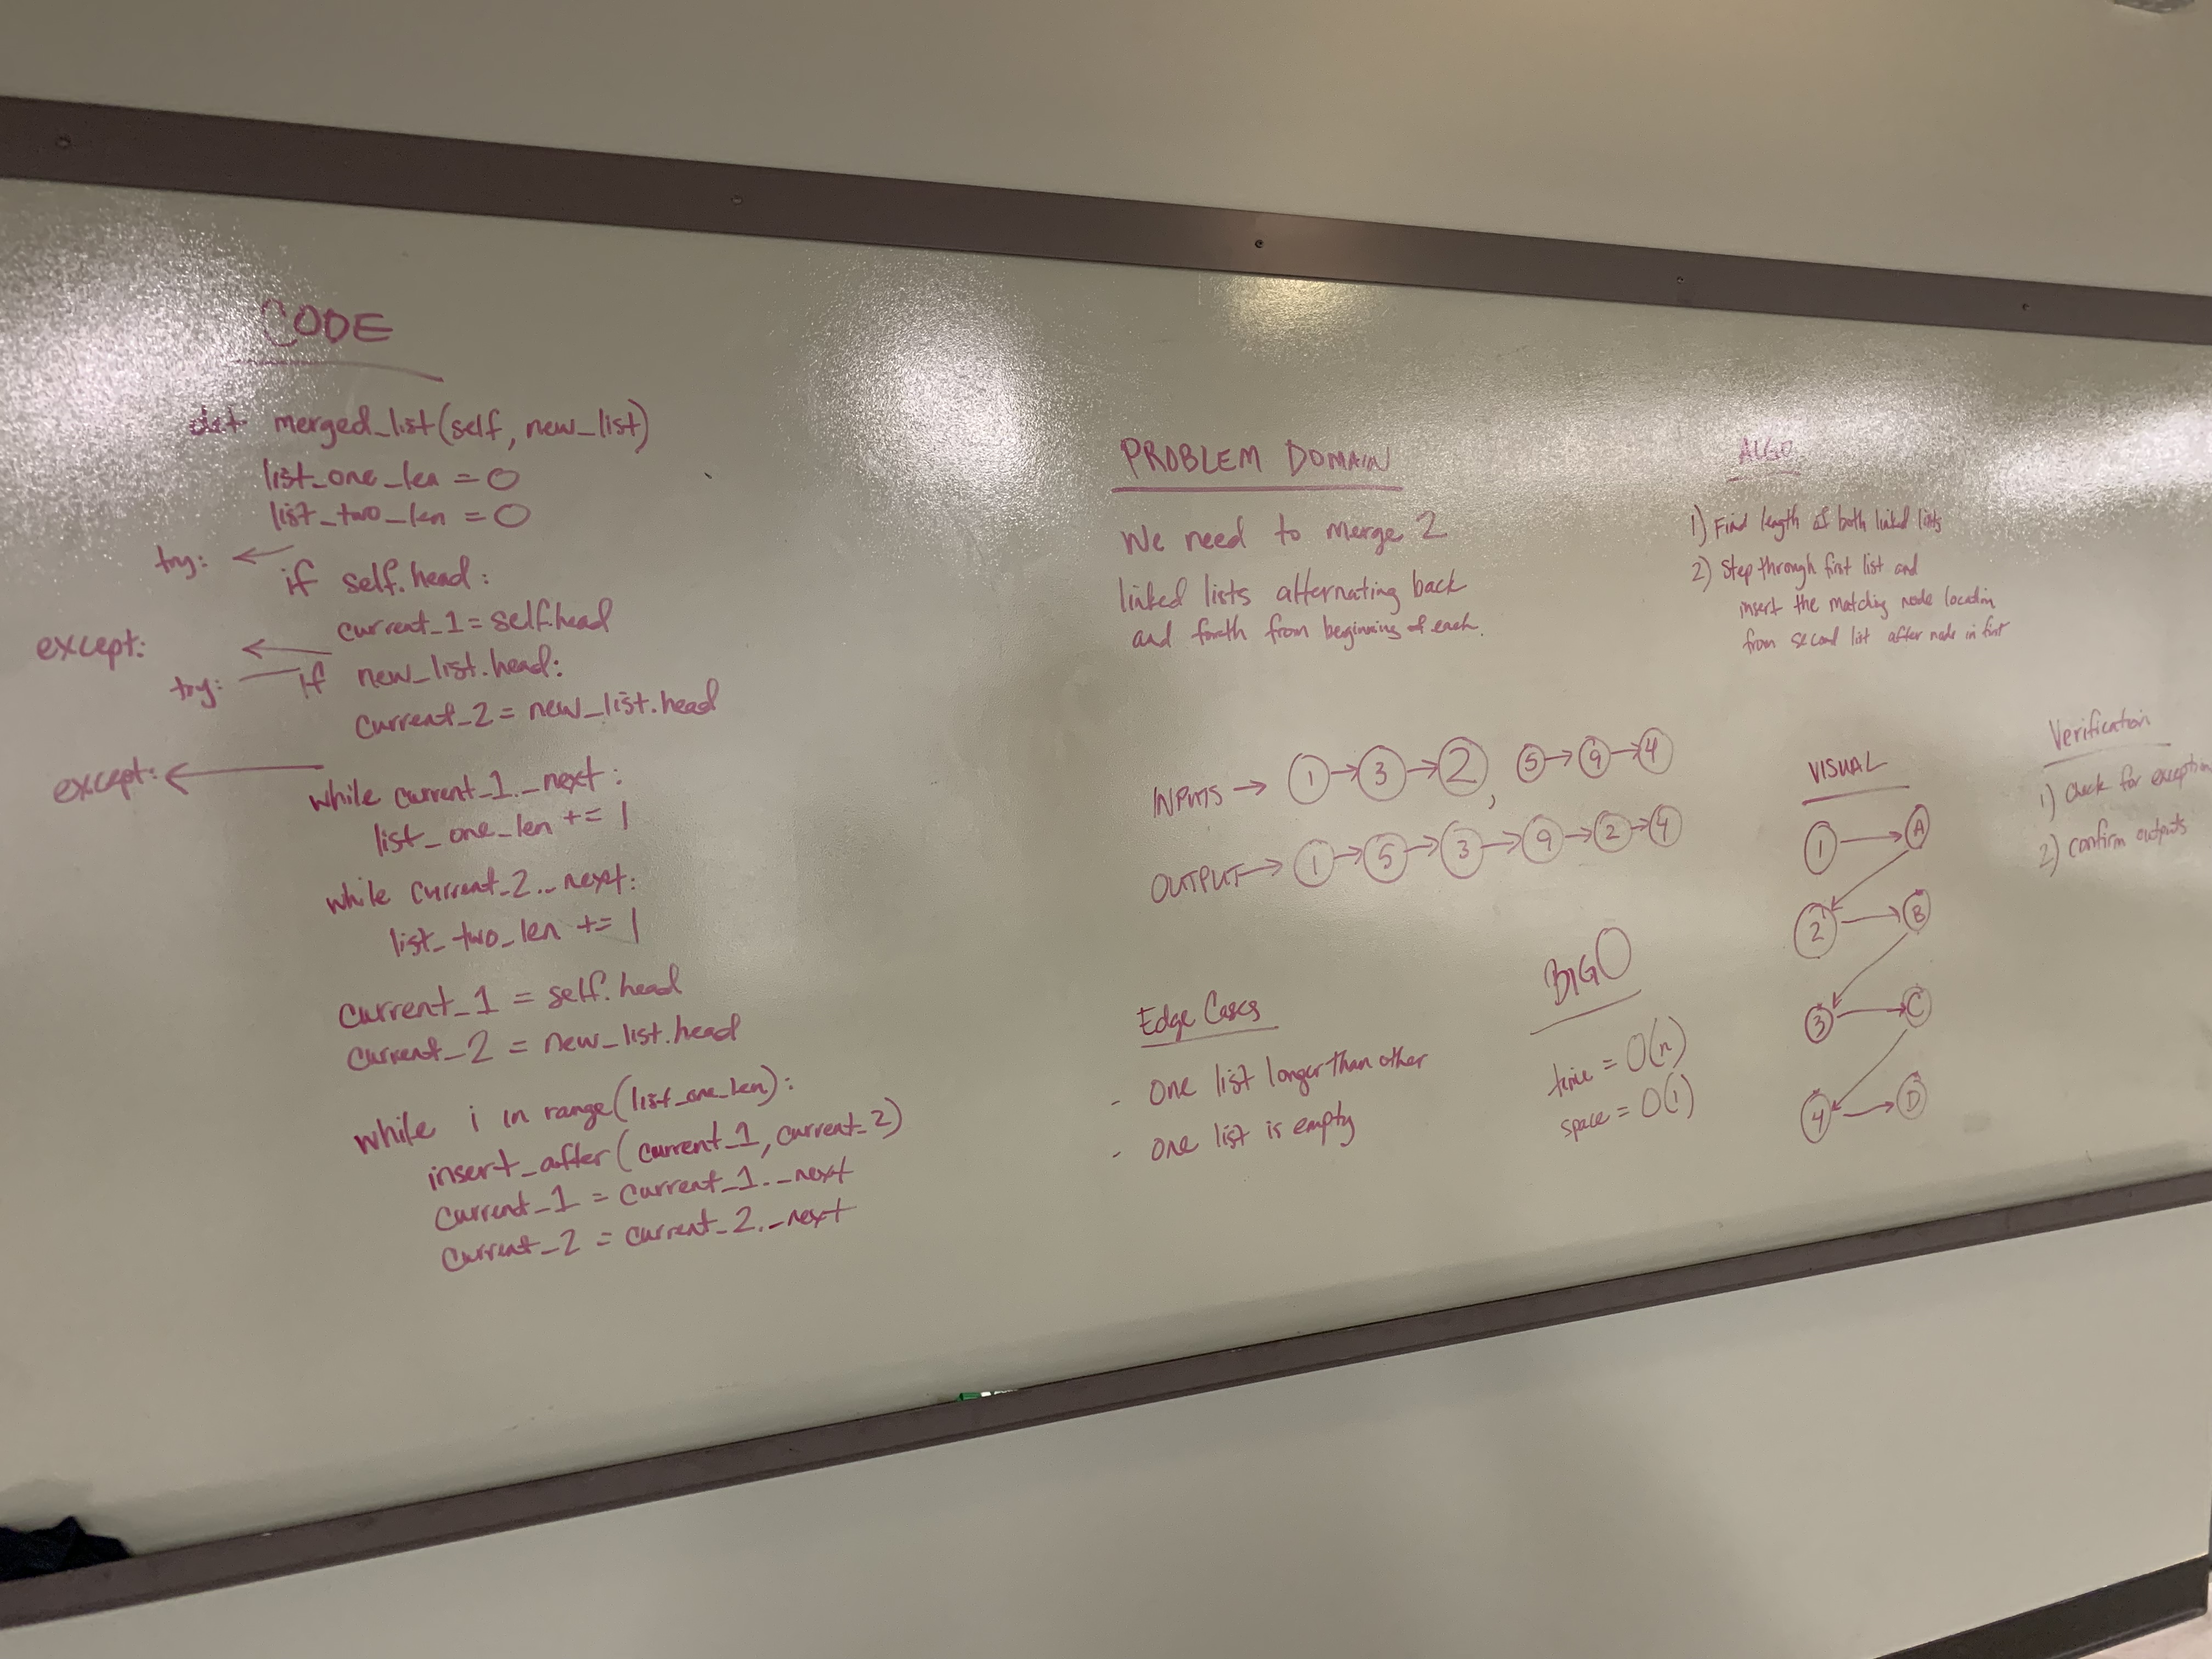 CODE
def merged_list(self, new_list)
list_one_len = 0
list_two_len = 0
try:
if self.head:
current_1 = self.head
except:
try:
if new_list.head:
current_2 = new_list.head
except:
while current_1._next:
list_one_len += 1
while current_2._next:
list_two_len += 1
current_1 = self.head
current_2 = new_list.head
while i in range(list_one_len):
insert_after(current_1, current_2)
current_1 = current_1._next
current_2 = current_2._next
PROBLEM DOMAIN
We need to merge 2
linked lists alternating back
and forth from beginning of each.
INPUTS → 1 → 3 → 2, 5 → 9 → 4
OUTPUT → 1 → 5 → 3 → 9 → 2 → 4
Edge Cases
- One list longer than other
- one list is empty
BIG O
time = O(n)
space = O(1)
ALGO
1) Find length of both linked lists
2) Step through first list and
insert the matching node location
from second list after node in first
VISUAL
1 → A
2 → B
3 → C
4 → D
Verification
1) Check for exception
2) confirm outputs